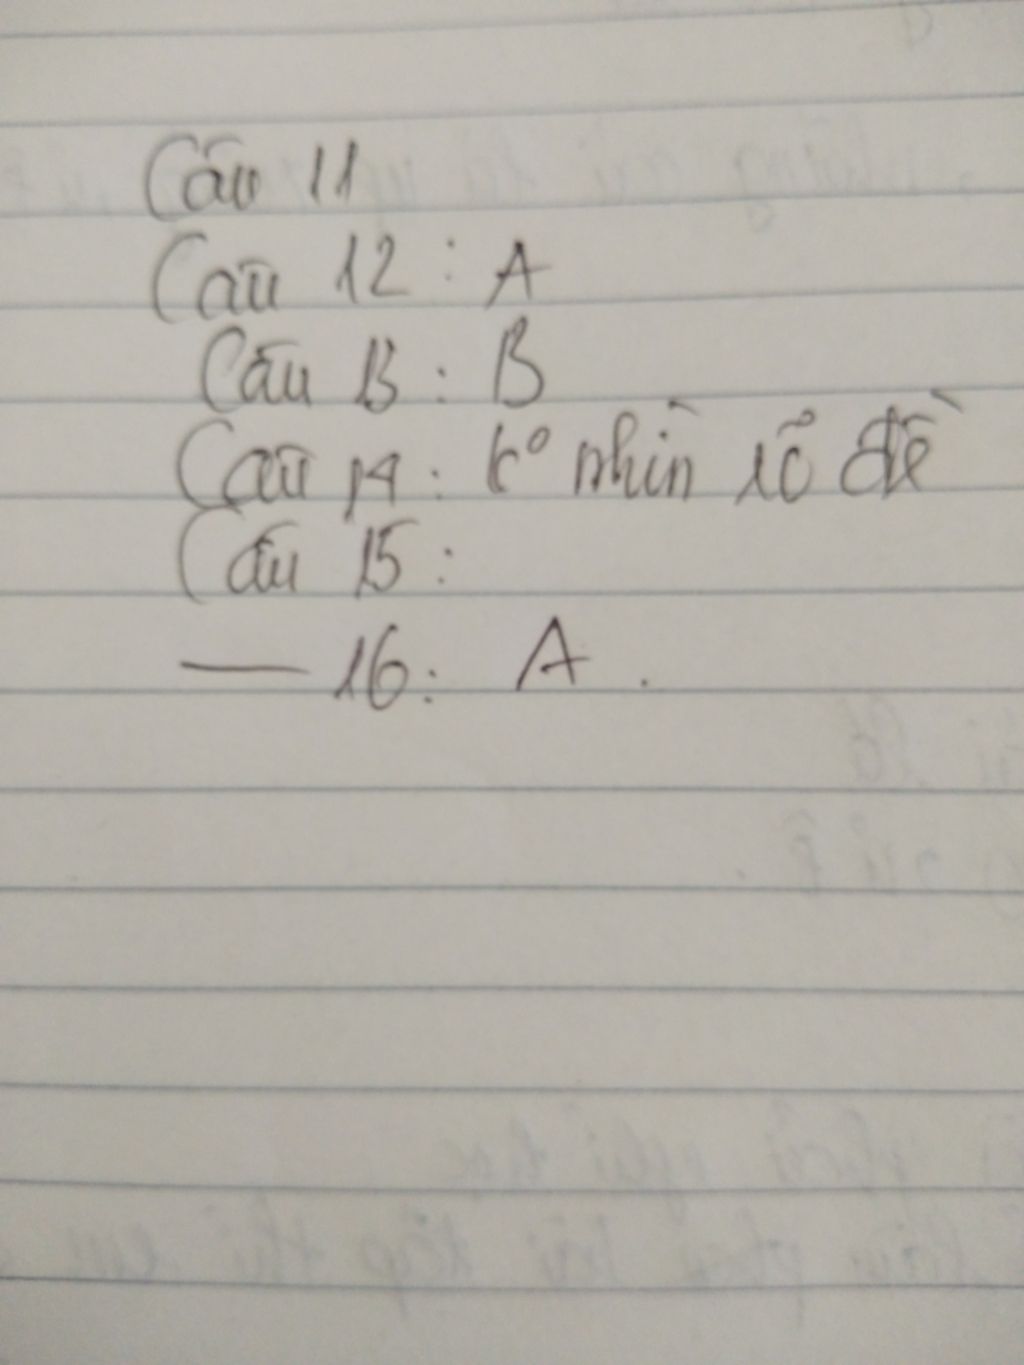 Câu 11
Câu 12 : A
Câu 13 : B
Câu 14 : kº nhìn rõ đề
Câu 15 :
— 16 : A .